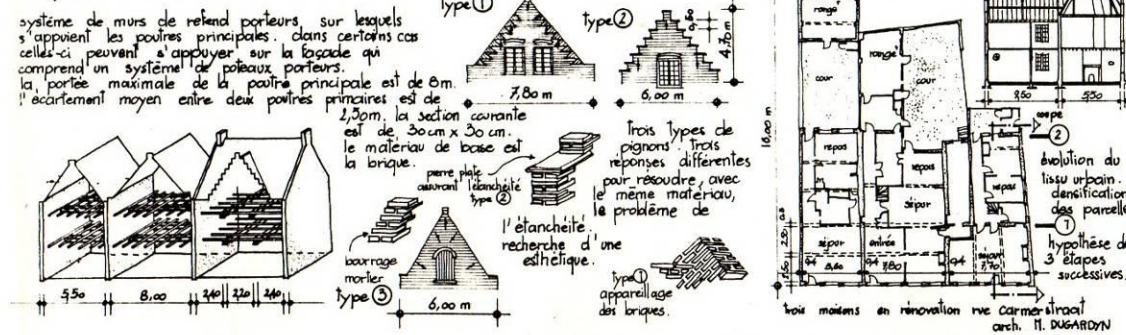 système de murs de refend porteurs, sur lesquels
s'appuient les poutres principales. dans certains cas
celles-ci peuvent s'appuyer sur la façade qui
comprend un système de poteaux porteurs.
la portée maximale de la poutre principale est de 8m.
l'écartement moyen entre deux poutres primaires est de
2,50m. la section courante
est de 30cm x 30cm.
le matériau de base est
la brique.
type 1
7,80 m
type 2
0,60
4,70 m
6,00 m
pierre plate
assurant l'étanchéité
type 2
Trois types de
pignons. Trois
réponses différentes
pour résoudre, avec
le même matériau,
le problème de
l'étanchéité.
recherche d'une
esthétique.
bourrage
mortier
type 3
6,00 m
type 1
appareillage
des briques.
5,50
8,00
2,40
2,20
2,40
rangt
rangt
cour
cour
repas
repas
repas
séjour
séjour
entrée
séjour
16,00 m
2,50
0,4
5,60
7,80
0,4
7,70
9,50
5,50
coupe
2
évolution du
tissu urbain.
densification
des parcelles
1
hypothèse de
3 étapes
successives.
trois maisons en rénovation rue carmerstraat
arch. M. DUGARDYN